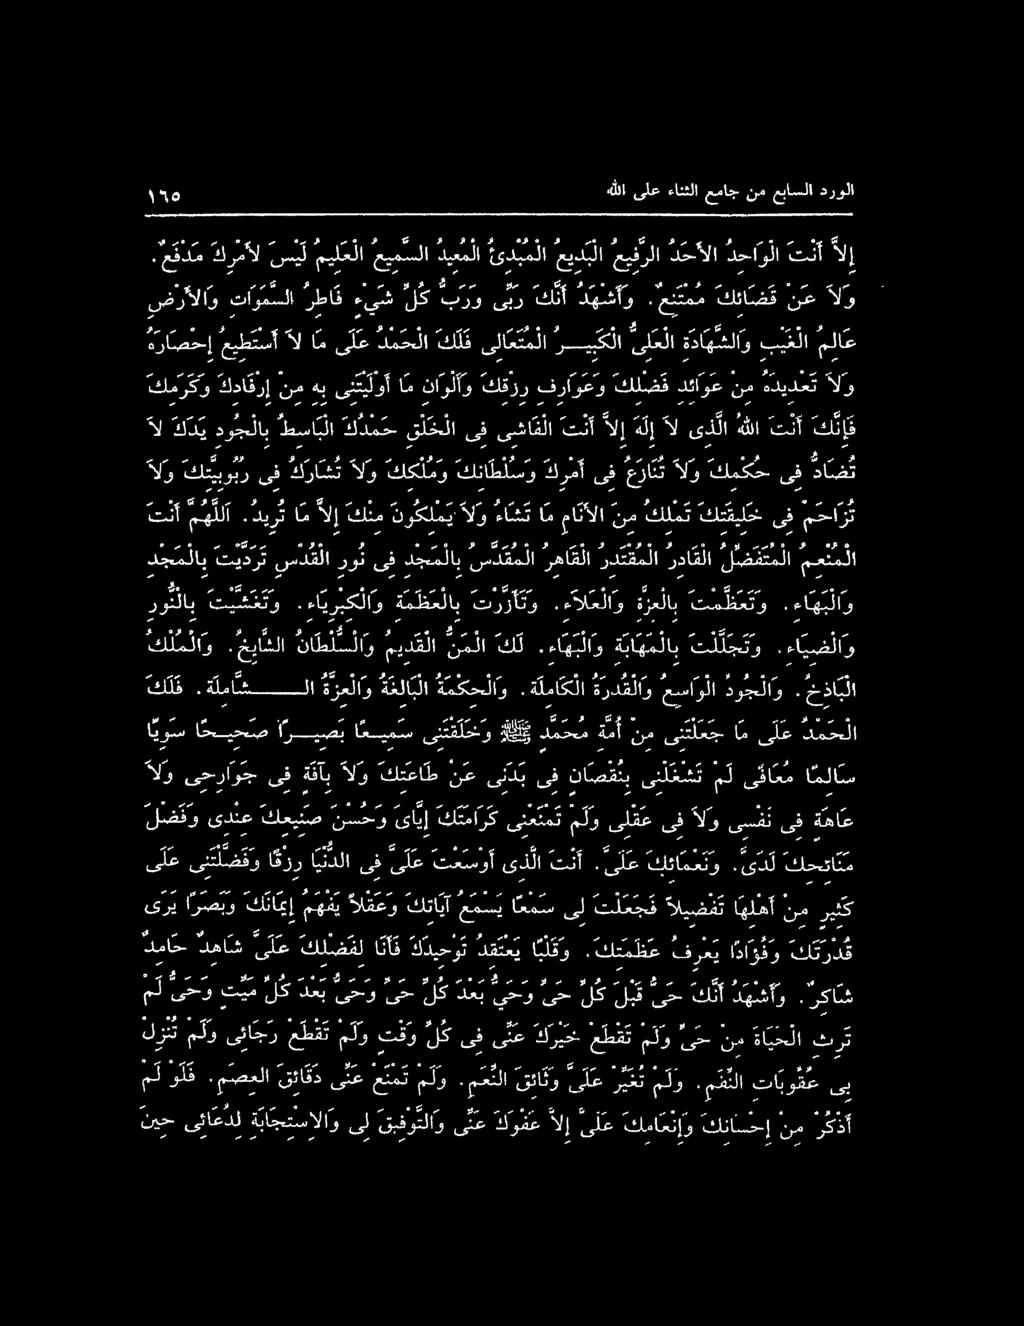 الورد السابع من جامع الثناء على الله ١٦٥
إِلاَّ أَنْتَ الْوَاحِدُ الأَحَدُ الرَّفِيعُ الْبَدِيعُ الْمُبْدِئُ الْمُعِيدُ السَّمِيعُ الْعَلِيمُ لَيْسَ لأَمْرِكَ مَدْفَعٌ.
وَلاَ عَنْ قَضَائِكَ مُمْتَنِعٌ. وَأَشْهَدُ أَنَّكَ رَبِّى وَرَبُّ كُلِّ شَيْءٍ فَاطِرُ السَّمَوَاتِ وَالأَرْضِ
عَالِمُ الْغَيْبِ وَالشَّهَادَةِ الْعَلِىُّ الْكَبِيـــرُ الْمُتَعَالِى فَلَكَ الْحَمْدُ عَلَى مَا لاَ أَسْتَطِيعُ إِحْصَارَهُ
وَلاَ تَعْدِيدَهُ مِنْ عَوَائِدِ فَضْلِكَ وَعَوَارِفِ رِزْقِكَ وَأَلْوَانِ مَا أَوْلَيْتَنِى بِهِ مِنْ إِرْفَادِكَ وَكَرَمِكَ
فَإِنَّكَ أَنْتَ اللهُ الَّذِى لاَ إِلَهَ إِلاَّ أَنْتَ الْفَاشِى فِى الْخَلْقِ حَمْدُكَ الْبَاسِطُ بِالْجُودِ يَدَكَ لاَ
تُضَادُّ فِى حُكْمِكَ وَلاَ تُنَازَعُ فِى أَمْرِكَ وَسُلْطَانِكَ وَمُلْكِكَ وَلاَ تُشَارَكُ فِى رُبُوبِيَّتِكَ وَلاَ
تُزَاحَمُ فِى خَلِيقَتِكَ تَمْلِكُ مِنَ الأَنَامِ مَا تَشَاءُ وَلاَ يَمْلِكُونَ مِنْكَ إِلاَّ مَا تُرِيدُ. اَللَّهُمَّ أَنْتَ
الْمُنْعِمُ الْمُتَفَضِّلُ الْقَادِرُ الْمُقْتَدِرُ الْقَاهِرُ الْمُقَدَّسُ بِالْمَجْدِ فِى نُورِ الْقُدْسِ تَرَدَّيْتَ بِالْمَجْدِ
وَالْبَهَاءِ. وَتَعَظَّمْتَ بِالْعِزَّةِ وَالْعَلاَءِ. وَتَأَزَّرْتَ بِالْعَظَمَةِ وَالْكِبْرِيَاءِ. وَتَغَشَّيْتَ بِالنُّورِ
وَالضِّيَاءِ. وَتَجَلَّلْتَ بِالْمَهَابَةِ وَالْبَهَاءِ. لَكَ الْمَنُّ الْقَدِيمُ وَالسُّلْطَانُ الشَّايِخُ. وَالْمُلْكُ
الْبَاذِخُ. وَالْجُودُ الْوَاسِعُ وَالْقُدْرَةُ الْكَامِلَةُ. وَالْحِكْمَةُ الْبَالِغَةُ وَالْعِزَّةُ الـــشَّامِلَةُ. فَلَكَ
الْحَمْدُ عَلَى مَا جَعَلْتَنِى مِنْ أُمَّةِ مُحَمَّدٍ ﷺ وَخَلَقْتَنِى سَمِيـعًا بَصِيـــرًا صَحِيـحًا سَوِيًّا
سَالِمًا مُعَافًى لَمْ تَشْغَلْنِى بِنُقْصَانٍ فِى بَدَنِى عَنْ طَاعَتِكَ وَلاَ بِآفَةٍ فِى جَوَارِحِى وَلاَ
عَاهَةٍ فِى نَفْسِى وَلاَ فِى عَقْلِى وَلَمْ تَمْنَعْنِى كَرَامَتَكَ إِيَّاىَ وَحُسْنَ صَنِيعِكَ عِنْدِى وَفَضْلَ
مَنَائِحِكَ لَدَىَّ. وَنَعْمَائِكَ عَلَىَّ. أَنْتَ الَّذِى أَوْسَعْتَ عَلَىَّ فِى الدُّنْيَا رِزْقًا وَفَضَّلْتَنِى عَلَى
كَثِيرٍ مِنْ أَهْلِهَا تَفْضِيلاً فَجَعَلْتَ لِى سَمْعًا يَسْمَعُ آيَاتِكَ وَعَقْلاً يَفْهَمُ إِيمَانَكَ وَبَصَرًا يَرَى
قُدْرَتَكَ وَفُؤَادًا يَعْرِفُ عَظَمَتَكَ. وَقَلْبًا يَعْتَقِدُ تَوْحِيدَكَ فَأَنَا لِفَضْلِكَ عَلَىَّ شَاهِدٌ حَامِدٌ
شَاكِرٌ. وَأَشْهَدُ أَنَّكَ حَىٌّ قَبْلَ كُلِّ حَىٍّ وَحَىٌّ بَعْدَ كُلِّ حَىٍّ وَحَىٌّ بَعْدَ كُلِّ مَيِّتٍ وَحَىٌّ لَمْ
تَرِثِ الْحَيَاةَ مِنْ حَىٍّ وَلَمْ تَقْطَعْ خَيْرَكَ عَنِّى فِى كُلِّ وَقْتٍ وَلَمْ تَقْطَعْ رَجَائِى وَلَمْ تُنْزِلْ
بِى عُقُوبَاتِ النِّقَمِ. وَلَمْ تُغَيِّرْ عَلَىَّ وَثَائِقَ النِّعَمِ. وَلَمْ تَمْنَعْ عَنِّى دَقَائِقَ الْعِصَمِ. فَلَوْ لَمْ
أَذْكُرْ مِنْ إِحْسَانِكَ وَإِنْعَامِكَ عَلَىَّ إِلاَّ عَفْوَكَ عَنِّى وَالتَّوْفِيقَ لِى وَالاِسْتِجَابَةَ لِدُعَائِى حِينَ